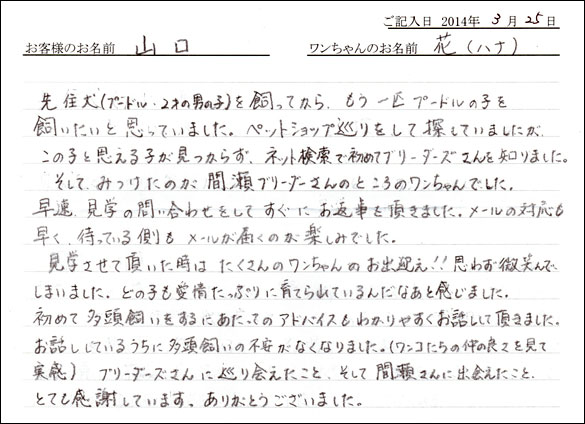 ご記入日 2014年 3月 25日
お客様のお名前 山口 ワンちゃんのお名前 花(ハナ)
先住犬(プードル・2才の男の子)を飼ってから、もう一匹プードルの子を
飼いたいと思っていました。ペットショップ巡りをして探していましたが、
この子と思える子が見つからず、ネット検索で初めてブリーダーズさんを知りました。
そして、みつけたのが間瀬ブリーダーさんのところのワンちゃんでした。
早速、見学の問い合わせをしてすぐにお返事を頂きました。メールの対応も
早く、待っている側もメールが届くのが楽しみでした。
見学させて頂いた時はたくさんのワンちゃんのお出迎え!!思わず微笑んで
しまいました。どの子も愛情たっぷりに育てられているんだなあと感じました。
初めて多頭飼いをするにあたってのアドバイスもわかりやすくお話しして頂きました。
お話ししているうちに多頭飼いの不安がなくなりました。(ワンコたちの仲の良さを見て
実感) ブリーダーズさんに巡り会えたこと、そして間瀬さんに出会えたこと、
とても感謝しています。ありがとうございました。